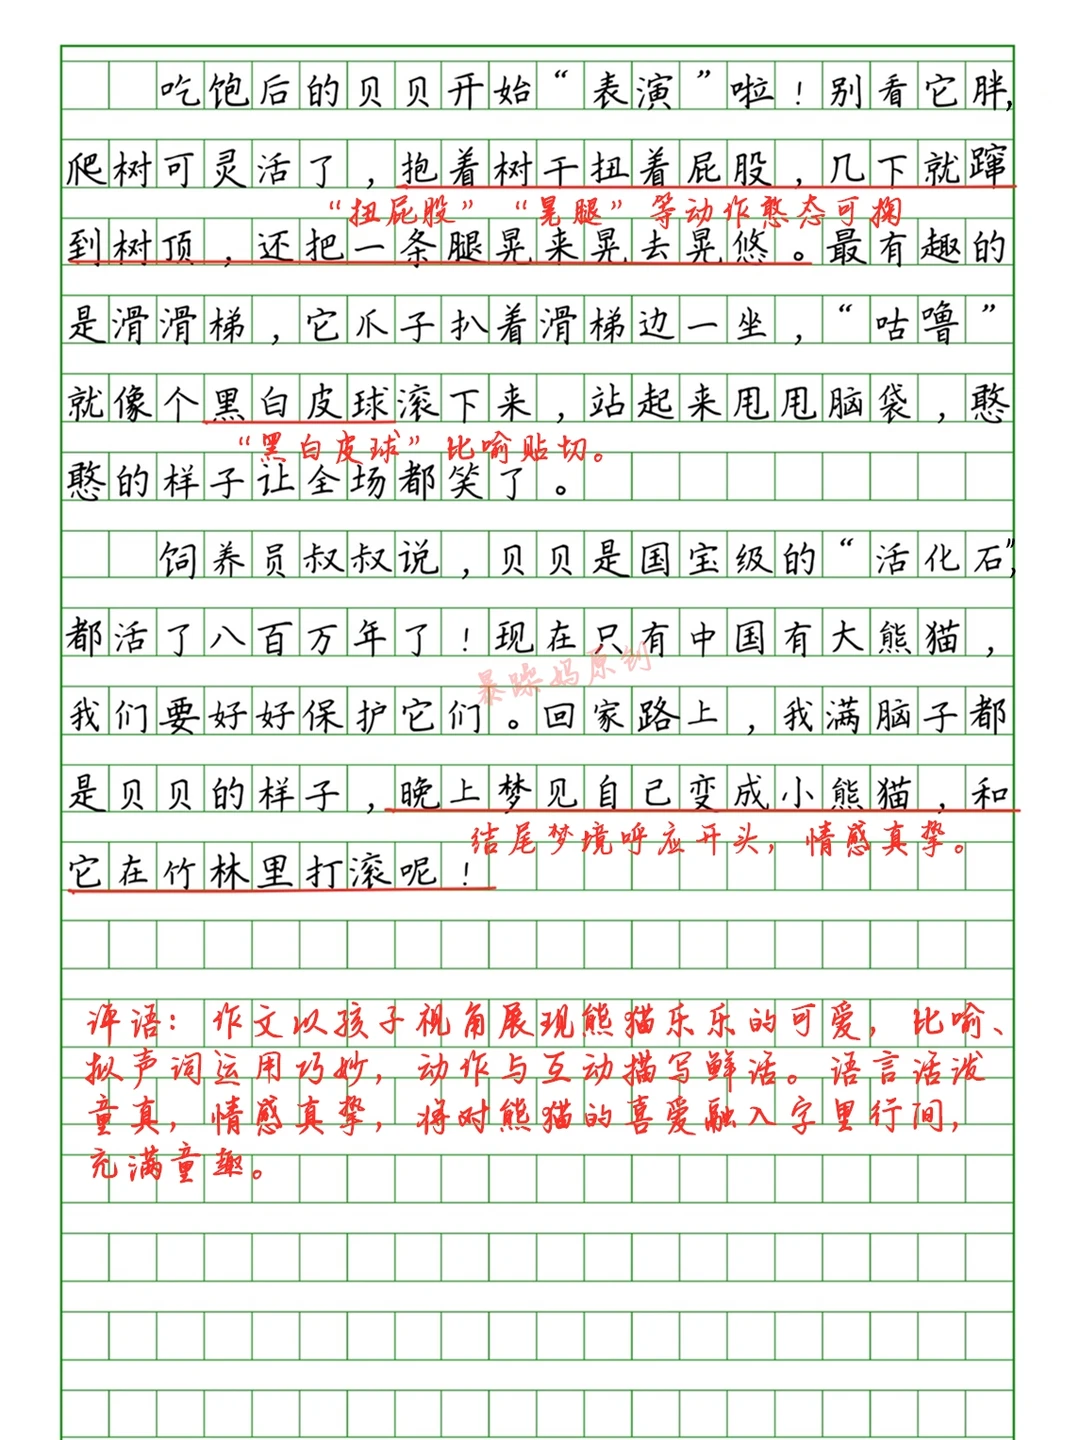 吃饱后的贝贝开始“表演”啦！别看它胖，
爬树可灵活了，抱着树干扭着屁股，几下就蹿
“扭屁股”“晃腿”等动作憨态可掬
到树顶，还把一条腿晃来晃去晃悠。最有趣的
是滑滑梯，它爪子扒着滑梯边一坐，“咕噜”
就像个黑白皮球滚下来，站起来甩甩脑袋，憨
“黑白皮球”比喻贴切。
憨的样子让全场都笑了。
饲养员叔叔说，贝贝是国宝级的“活化石”，
都活了八百万年了！现在只有中国有大熊猫，
暴躁妈原创
我们要好好保护它们。回家路上，我满脑子都
是贝贝的样子，晚上梦见自己变成小熊猫，和
结尾梦境呼应开头，情感真挚。
它在竹林里打滚呢！
评语：作文以孩子视角展现熊猫乐乐的可爱，比喻、
拟声词运用巧妙，动作与互动描写鲜活。语言活泼
童真，情感真挚，将对熊猫的喜爱融入字里行间，
充满童趣。